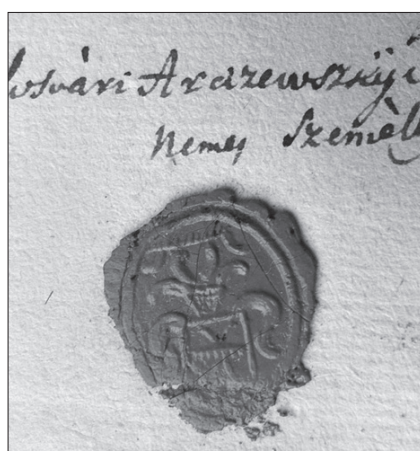 losvári Arazewszkÿi
Nemes Szemèl